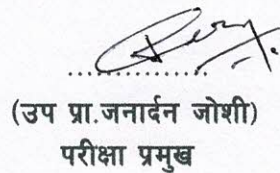 ....................
(उप प्रा.जनार्दन जोशी)
परीक्षा प्रमुख